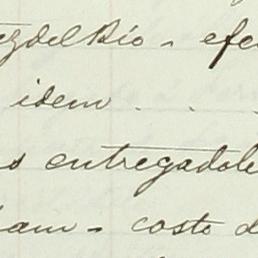 ez del Rio - efe
idem . . .
s entregadole
iam - costo d